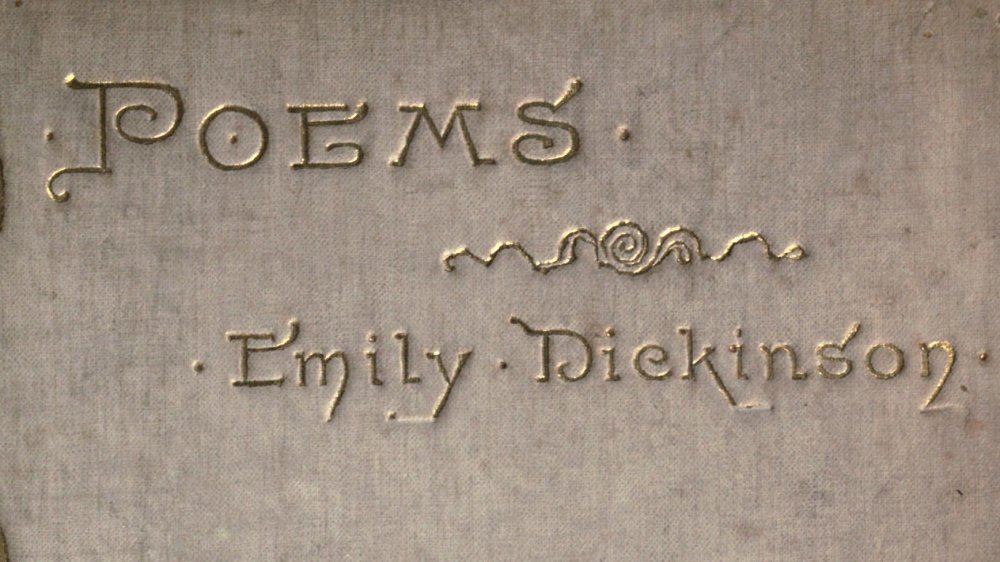 · POEMS ·
· Emily · Dickinson ·